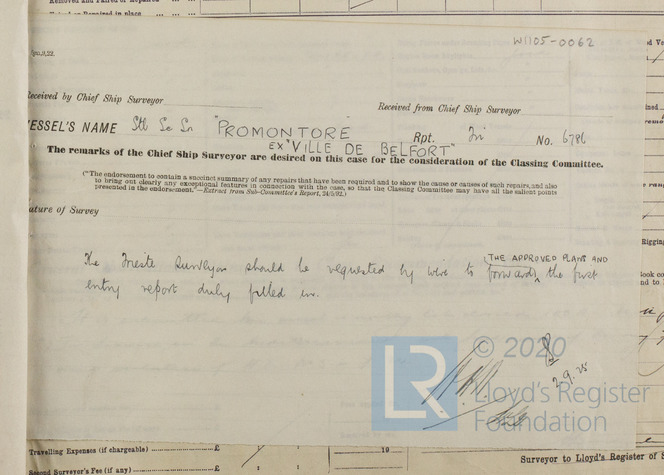 Removed and Faired or Repaired
W1105-0062
Received by Chief Ship Surveyor
Received from Chief Ship Surveyor
VESSEL'S NAME Stl Sc Sr "PROMONTORE Rpt. Tri No. 6786
EX "VILLE DE BELFORT"
The remarks of the Chief Ship Surveyor are desired on this case for the consideration of the Classing Committee.
("The endorsement to contain a succinct summary of any repairs that have been required and to show the cause or causes of such repairs, and also
to bring out clearly any exceptional features in connection with the case, so that the Classing Committee may have all the salient points
presented in the endorsement."—Extract from Sub-Committee's Report, 24/5/92.)
Nature of Survey
(THE APPROVED PLANS AND
The Trieste Surveyors should be requested by wire to forward the first
entry report duly filled in.
2.9.25
LR
© 2020
Lloyd's Register
Foundation
Travelling Expenses (if chargeable) £
19
Second Surveyor's Fee (if any) £
Surveyor to Lloyd's Register of S